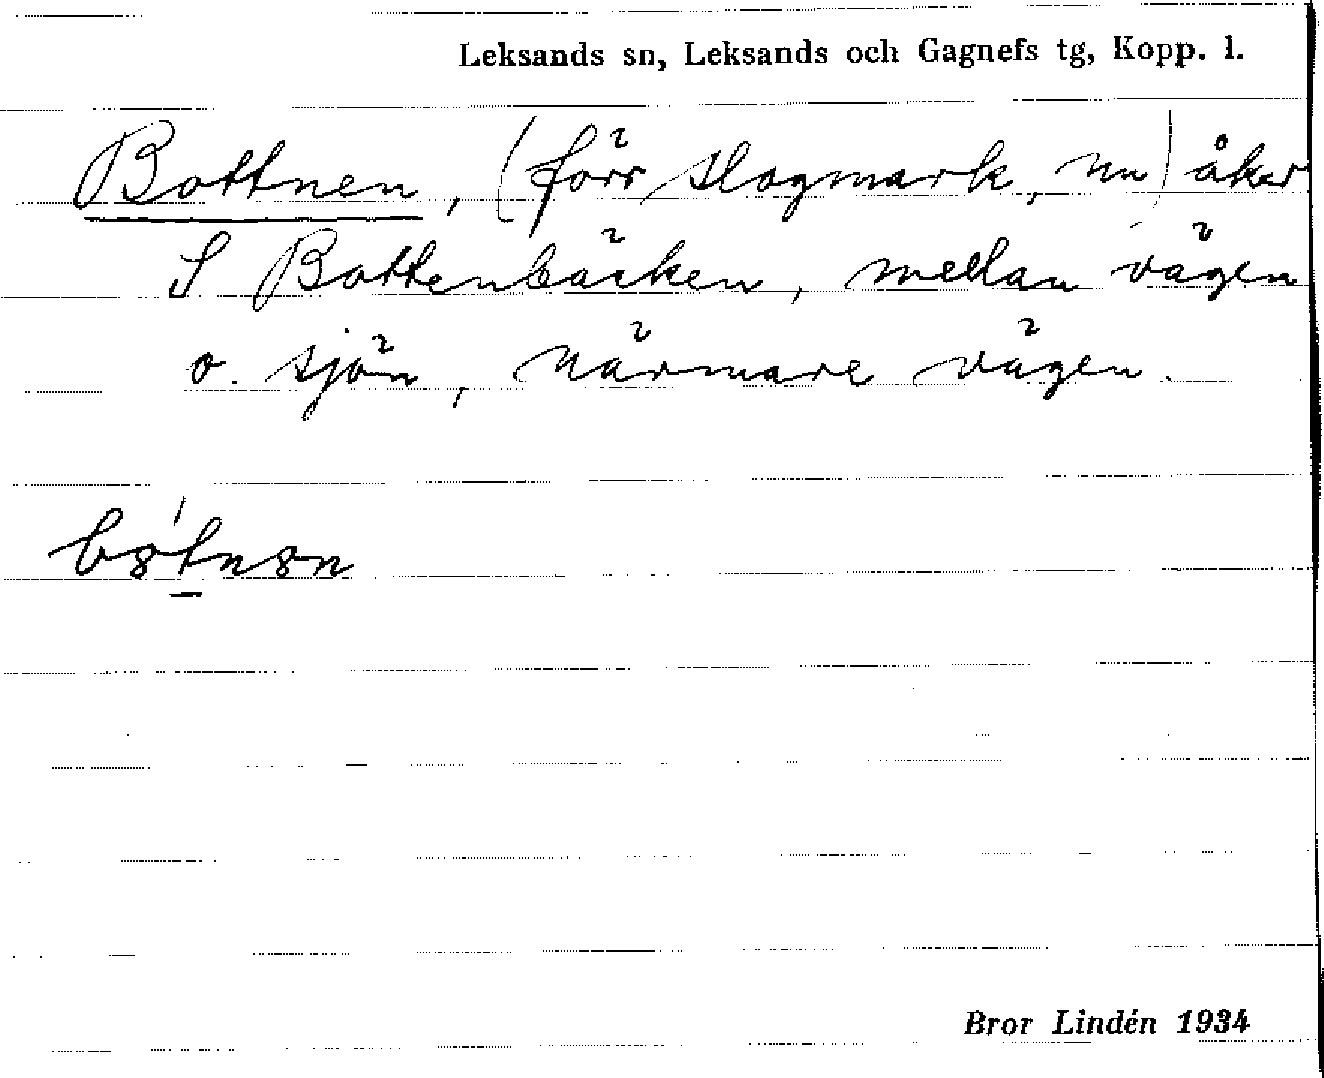 Leksands sn, Leksands och Gagnefs tg, Kopp. l.
Bottnen, (förr slogmark, nu) åker
S Bottenbäcken, mellan vägen
o. sjön, närmare vägen.
Bror Lindén 1934